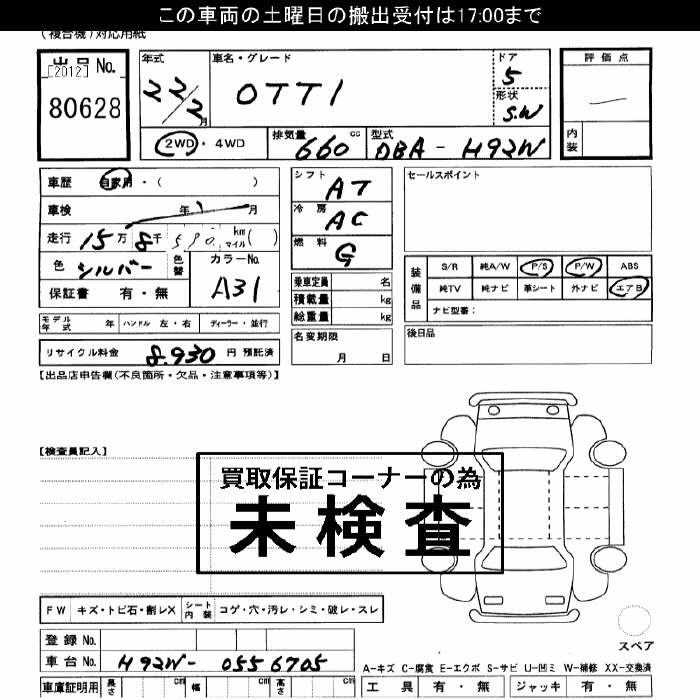 この車両の土曜日の搬出受付は17:00まで
(複合機)対応用紙
出品 No.
[2012]
80628
年式
22/2 月
車名・グレード
OTTI
ドア
5
形状
S.W
評価点
内装
2WD・4WD
排気量 660 cc
型式 DBA - H92W
車歴 自家用・( )
車検 年 月
走行 15万 8千 590 km マイル ( )
色 シルバー 色替
カラーNo. A31
保証書 有・無
シフト AT
冷房 AC
燃料 G
乗車定員 名
積載量 kg
総重量 kg
セールスポイント
装備品
S/R 純A/W P/S P/W ABS
純TV 純ナビ 革シート 外ナビ エアB
ナビ型番:
モデル年式 年 ハンドル 左・右 ディーラー・並行
名変期限
月 日
後日品
リサイクル料金 8.930 円 預託済
【出品店申告欄(不良箇所・欠品・注意事項等)】
【検査員記入】
買取保証コーナーの為
未検査
FW キズ・トビ石・割レX シート内装 コゲ・穴・汚レ・シミ・破レ・スレ
登録 No.
車台 No. H92W- 0556705
スペア
A-キズ C-腐食 E-エクボ S-サビ U-凹ミ W-補修 XX-交換済
車庫証明用 長さ cm 幅 cm 高さ cm
工具 有・無 ジャッキ 有・無